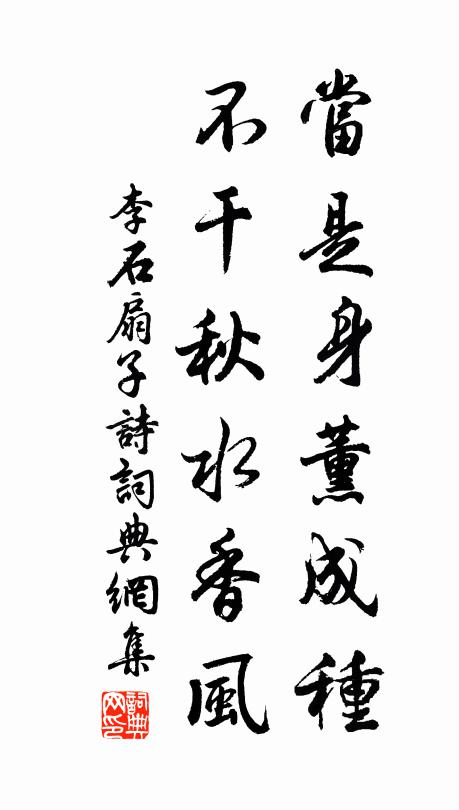 當是身薰成種
不干秋水香風
李石扇子詩詞典網集
詞典
网印